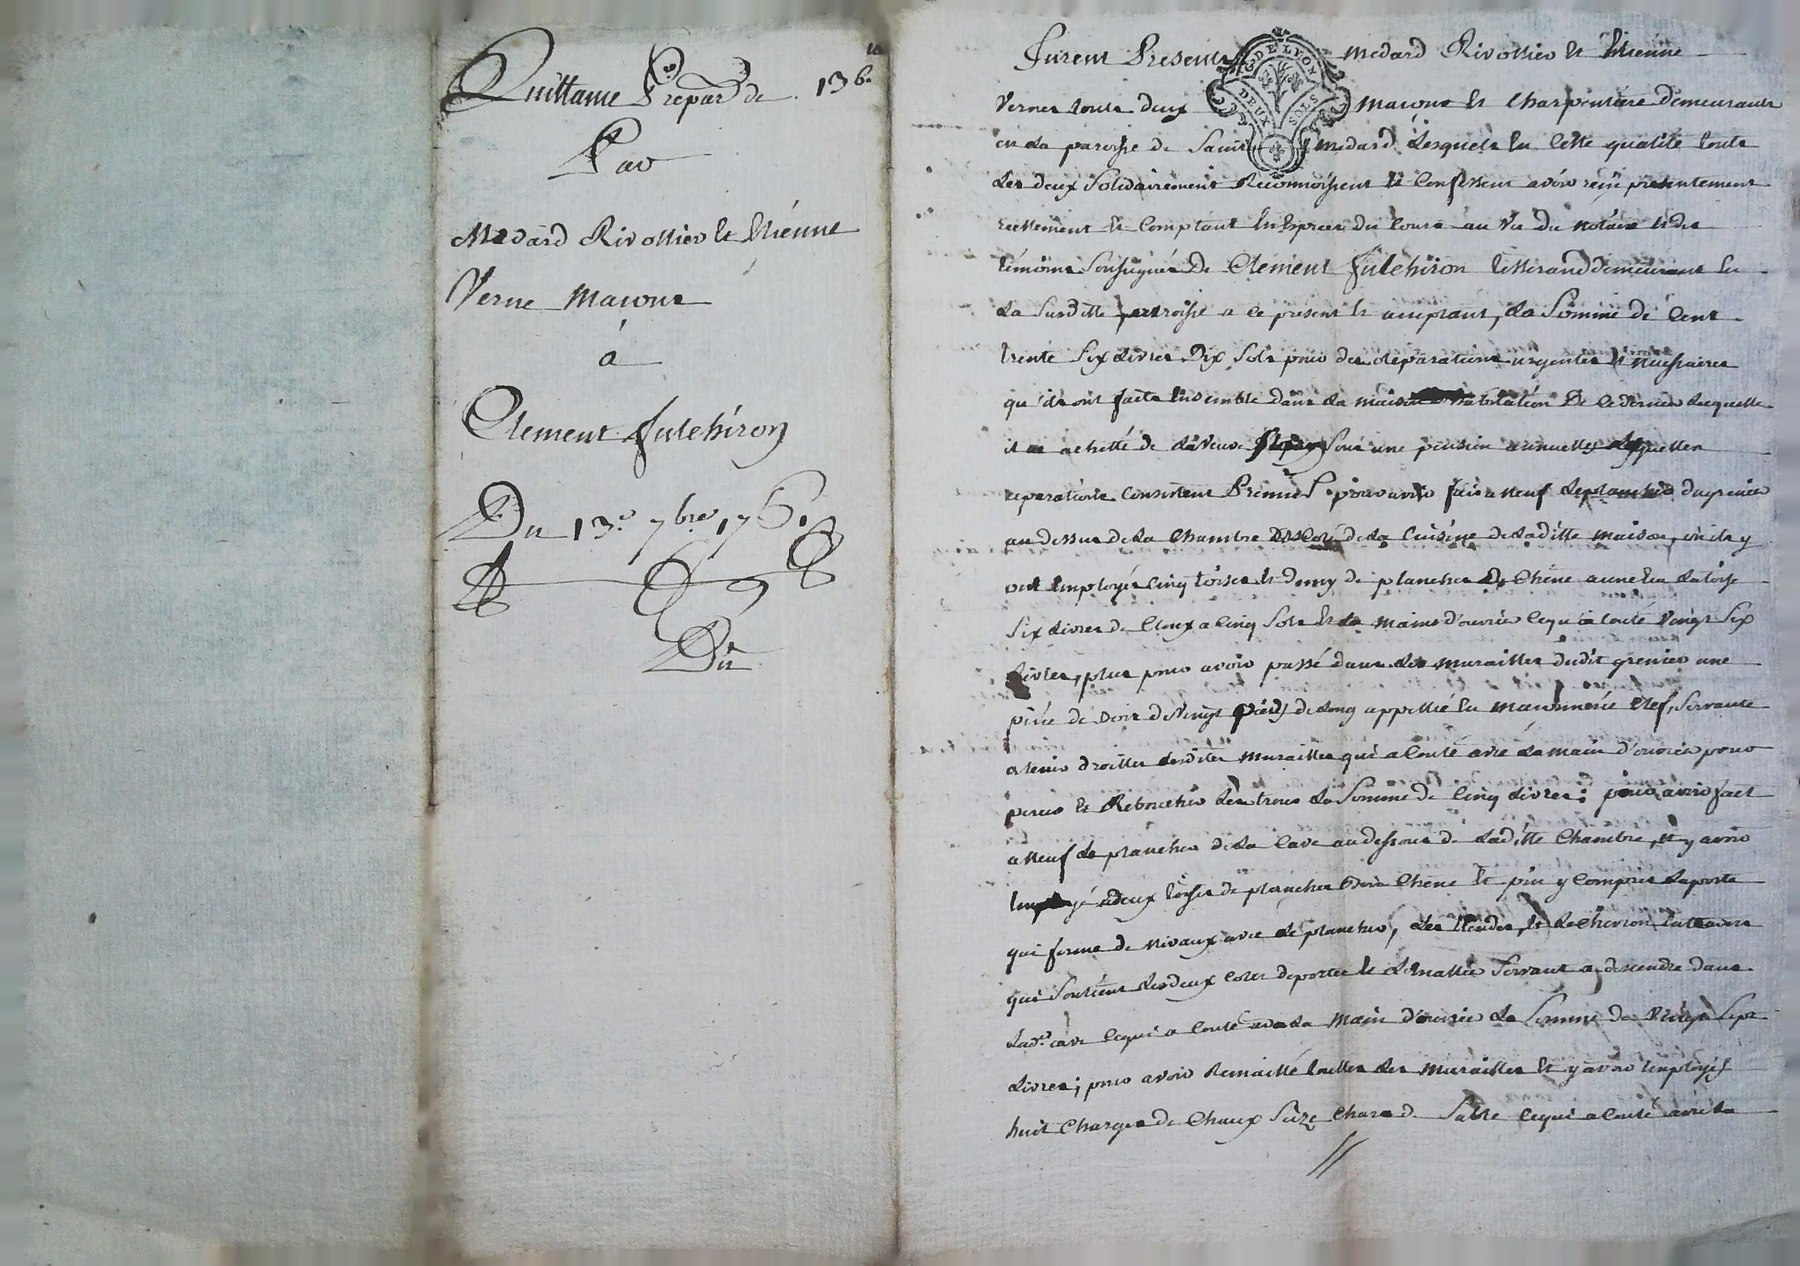 Quittance Prepar de 136
Par
Medard Rivollier et Etienne
Verne Macons
à
Clement fulchiron
Du 13.e 7bre 176
Du
furent Presents Medard Rivollier et Etienne
G. DE LYON
DEUX SOLS
Verne touts deux macons et charpentiers demeurants
en la paroisse de Saint medard lesquels en cette qualité touts
les deux solidairement Reconnoissent et confessent avoir reçu presentement
reellement et comptant en Especes du cours au vu du notaire et des
témoins soussignés De Clement fulchiron tisserand demeurant en
la susditte parroisse a ce present et acceptant, la Somme de Cent
trente six livres Dix sols pour des réparations urgentes et necessaires
qu'ils ont faits ensemble dans la maison d'habitation De ce dernier laquelle
il a achetté de sous une pension annuelle lesquelles
reparations consistent Premier.t pour avoir fait a neuf le plancher du grenier
au dessus de la chambre de la cuisine de laditte maison, où ils y
ont employé cinq toises et demy de planches De Chêne la toise
six livres de cloux a cinq sols et la main d'ouvrier ce qui a couté vingt six
livres, plus pour avoir passé dans les murailles dudit grenier une
piece de bois de vingt pieds de long appellée en maconnerie clef, servante
a tenir droittes lesdites murailles qui a couté avec la main d'ouvrier pour
percer et Reboucher les trous la somme de cinq livres; pour avoir fait
a neuf le plancher de la Cave au dessous de laditte chambre, et y avoir
employé deux toises de planches bois Chêne et pin y compris la porte
qui ferme de nivaux avec le plancher, et le chevron
qui soutient les deux cotes de portes et servant a descendre dans
lad.e cave ce qui a couté avec la main d'ouvrier la somme de vingt sept
livres; pour avoir Remaillé touttes les murailles et y avoir employés
huit charges de chaux seize chars de sable ce qui a couté avec la